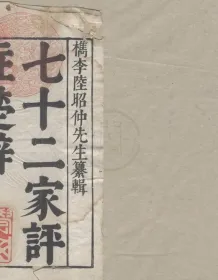 檇李陸昭仲先生纂輯
七十二家評
註楚辭